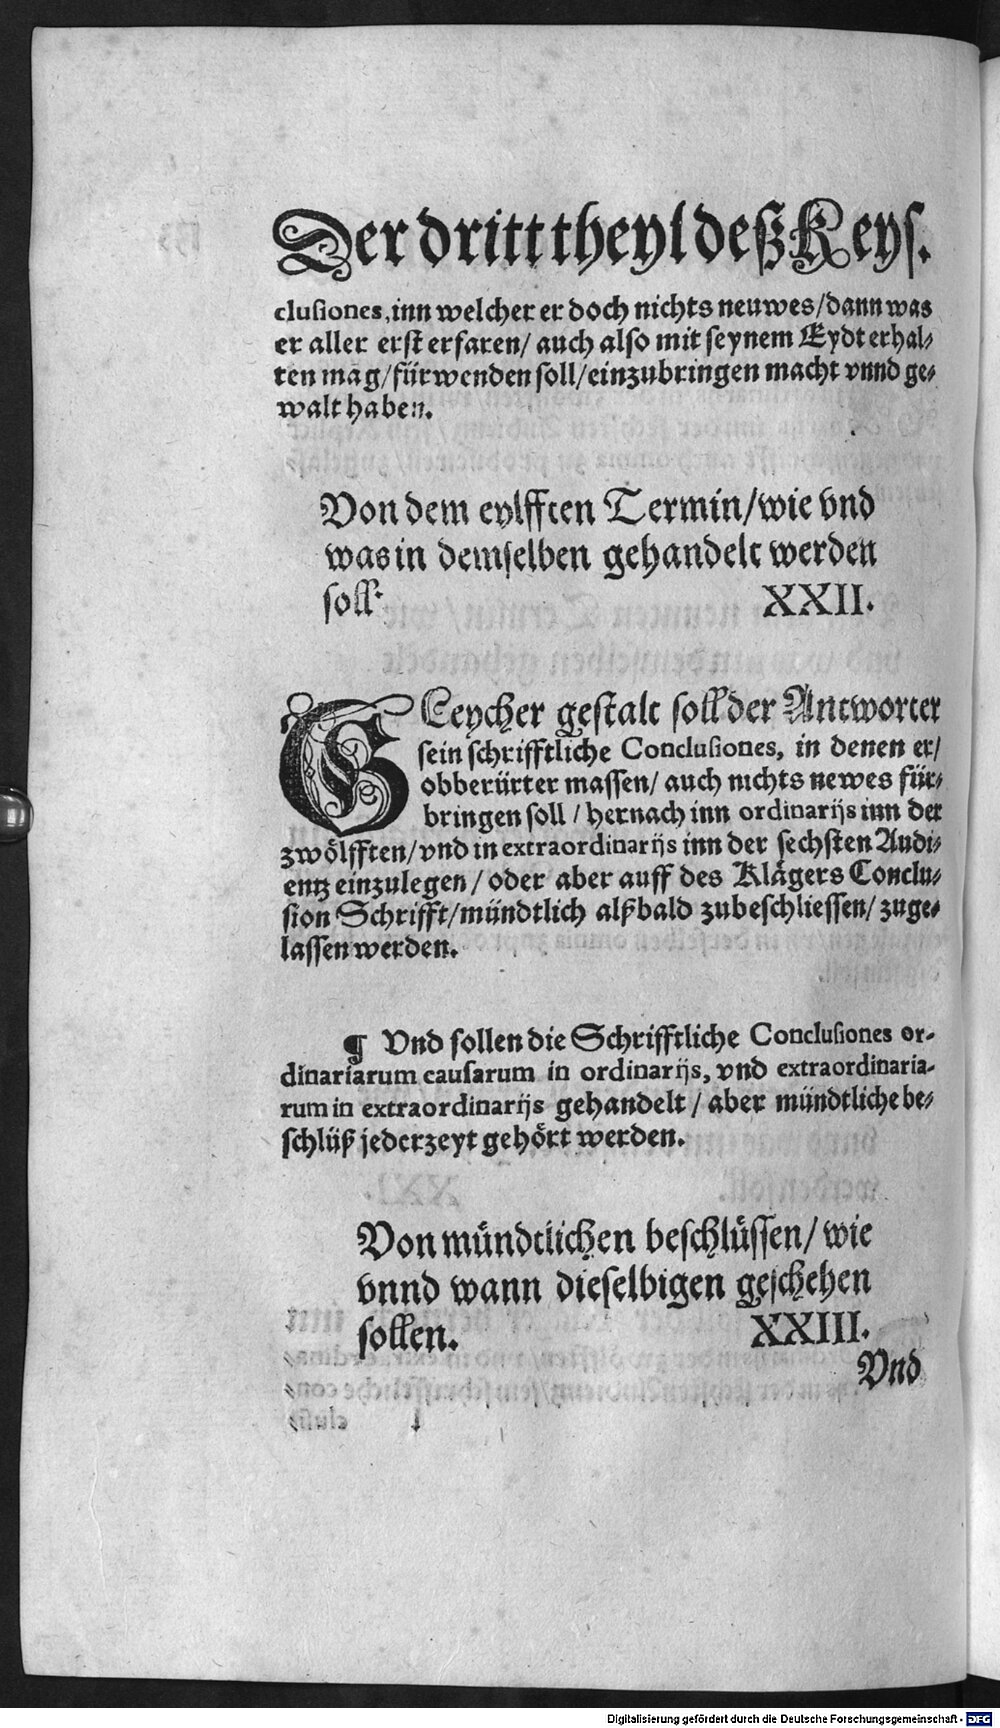 Der dritt theyl deß Keys.
clusiones, inn welcher er doch nichts neuwes/dann was
er aller erst erfaren/ auch also mit seynem Eydt erhal-
ten mag/fürwenden soll/einzubringen macht vnnd ge-
walt haben.
Von dem eylfften Termin/wie vnd
was in demselben gehandelt werden
soll. XXII.
GLeycher gestalt soll der Antworter
sein schrifftliche Conclusiones, in denen er/
obberürter massen/ auch nichts newes für-
bringen soll / hernach inn ordinarijs inn der
zwölfften/vnd in extraordinarijs inn der sechsten Audi-
entz einzulegen/ oder aber auff des Klägers Conclu-
sion Schrifft/mündtlich alßbald zubeschliessen/ zuge-
lassen werden.
¶ Vnd sollen die Schrifftliche Conclusiones or-
dinariarum causarum in ordinarijs, vnd extraordinaria-
rum in extraordinarijs gehandelt / aber mündtliche be-
schlüß jederzeyt gehört werden.
Von mündtlichen beschlüssen/ wie
vnnd wann dieselbigen geschehen
sollen. XXIII.
Vnd
Digitalisierung gefördert durch die Deutsche Forschungsgemeinschaft - DFG